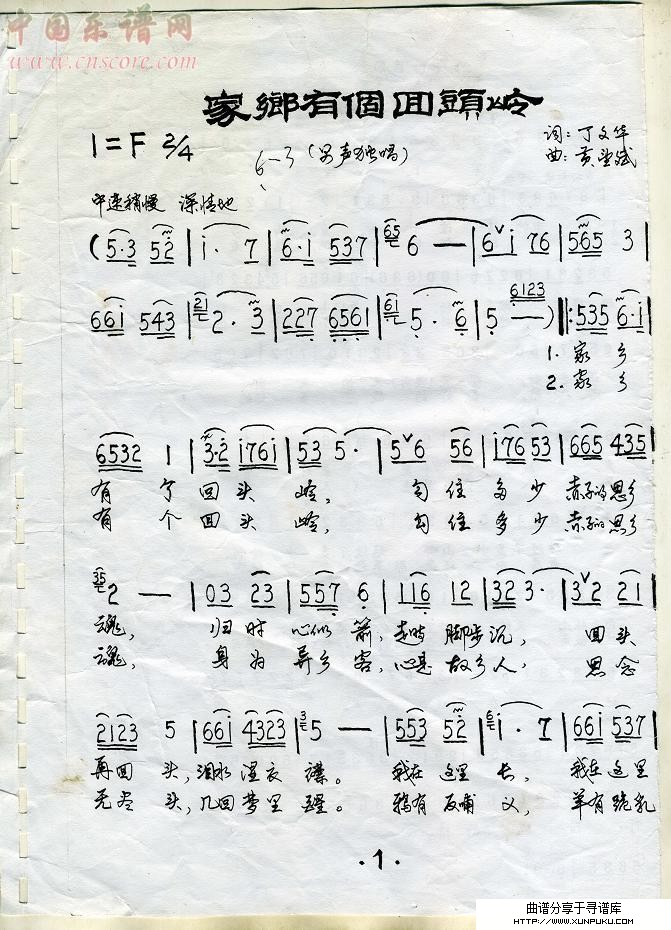 中国乐谱网
www.cnscore.com
家鄉有個回頭岭
1=F 2/4
6-3 (男声独唱)
词：丁文华
曲：黄圣斌
中速稍慢 深情地
(5·3 52 | i· 7 | 6·i 537 | 65 6 — | 6 i 76 | 565 3 |
66i 543 | 21 2· 3 | 227 6561 | 61 5· 6 | 5 — 6123) ‖: 535 6·i |
1. 家乡
2. 家乡
6532 1 | 3·2 i76i | 53 5· | 5 6 56 | i76 53 | 665 435 |
有个回头岭， 勾住多少赤子的思乡
有个回头岭， 勾住多少赤子的思乡
35 2 — | 03 23 | 557 6 | 116 12 | 32 3· | 3 2 21 |
魂， 归时心似箭，走时脚步沉， 回头
魂， 身为异乡客，心是故乡人， 思念
2123 5 | 66i 4323 | 3 5 — | 553 52 | 6 i· 7 | 66i 537 |
再回头，泪水湿衣襟。 我在这里长，我在这里
无尽头，几回梦里醒。 鸦有反哺义，羊有跪乳
·1·
曲谱分享于寻谱库
HTTP://WWW.XUNPUKU.COM